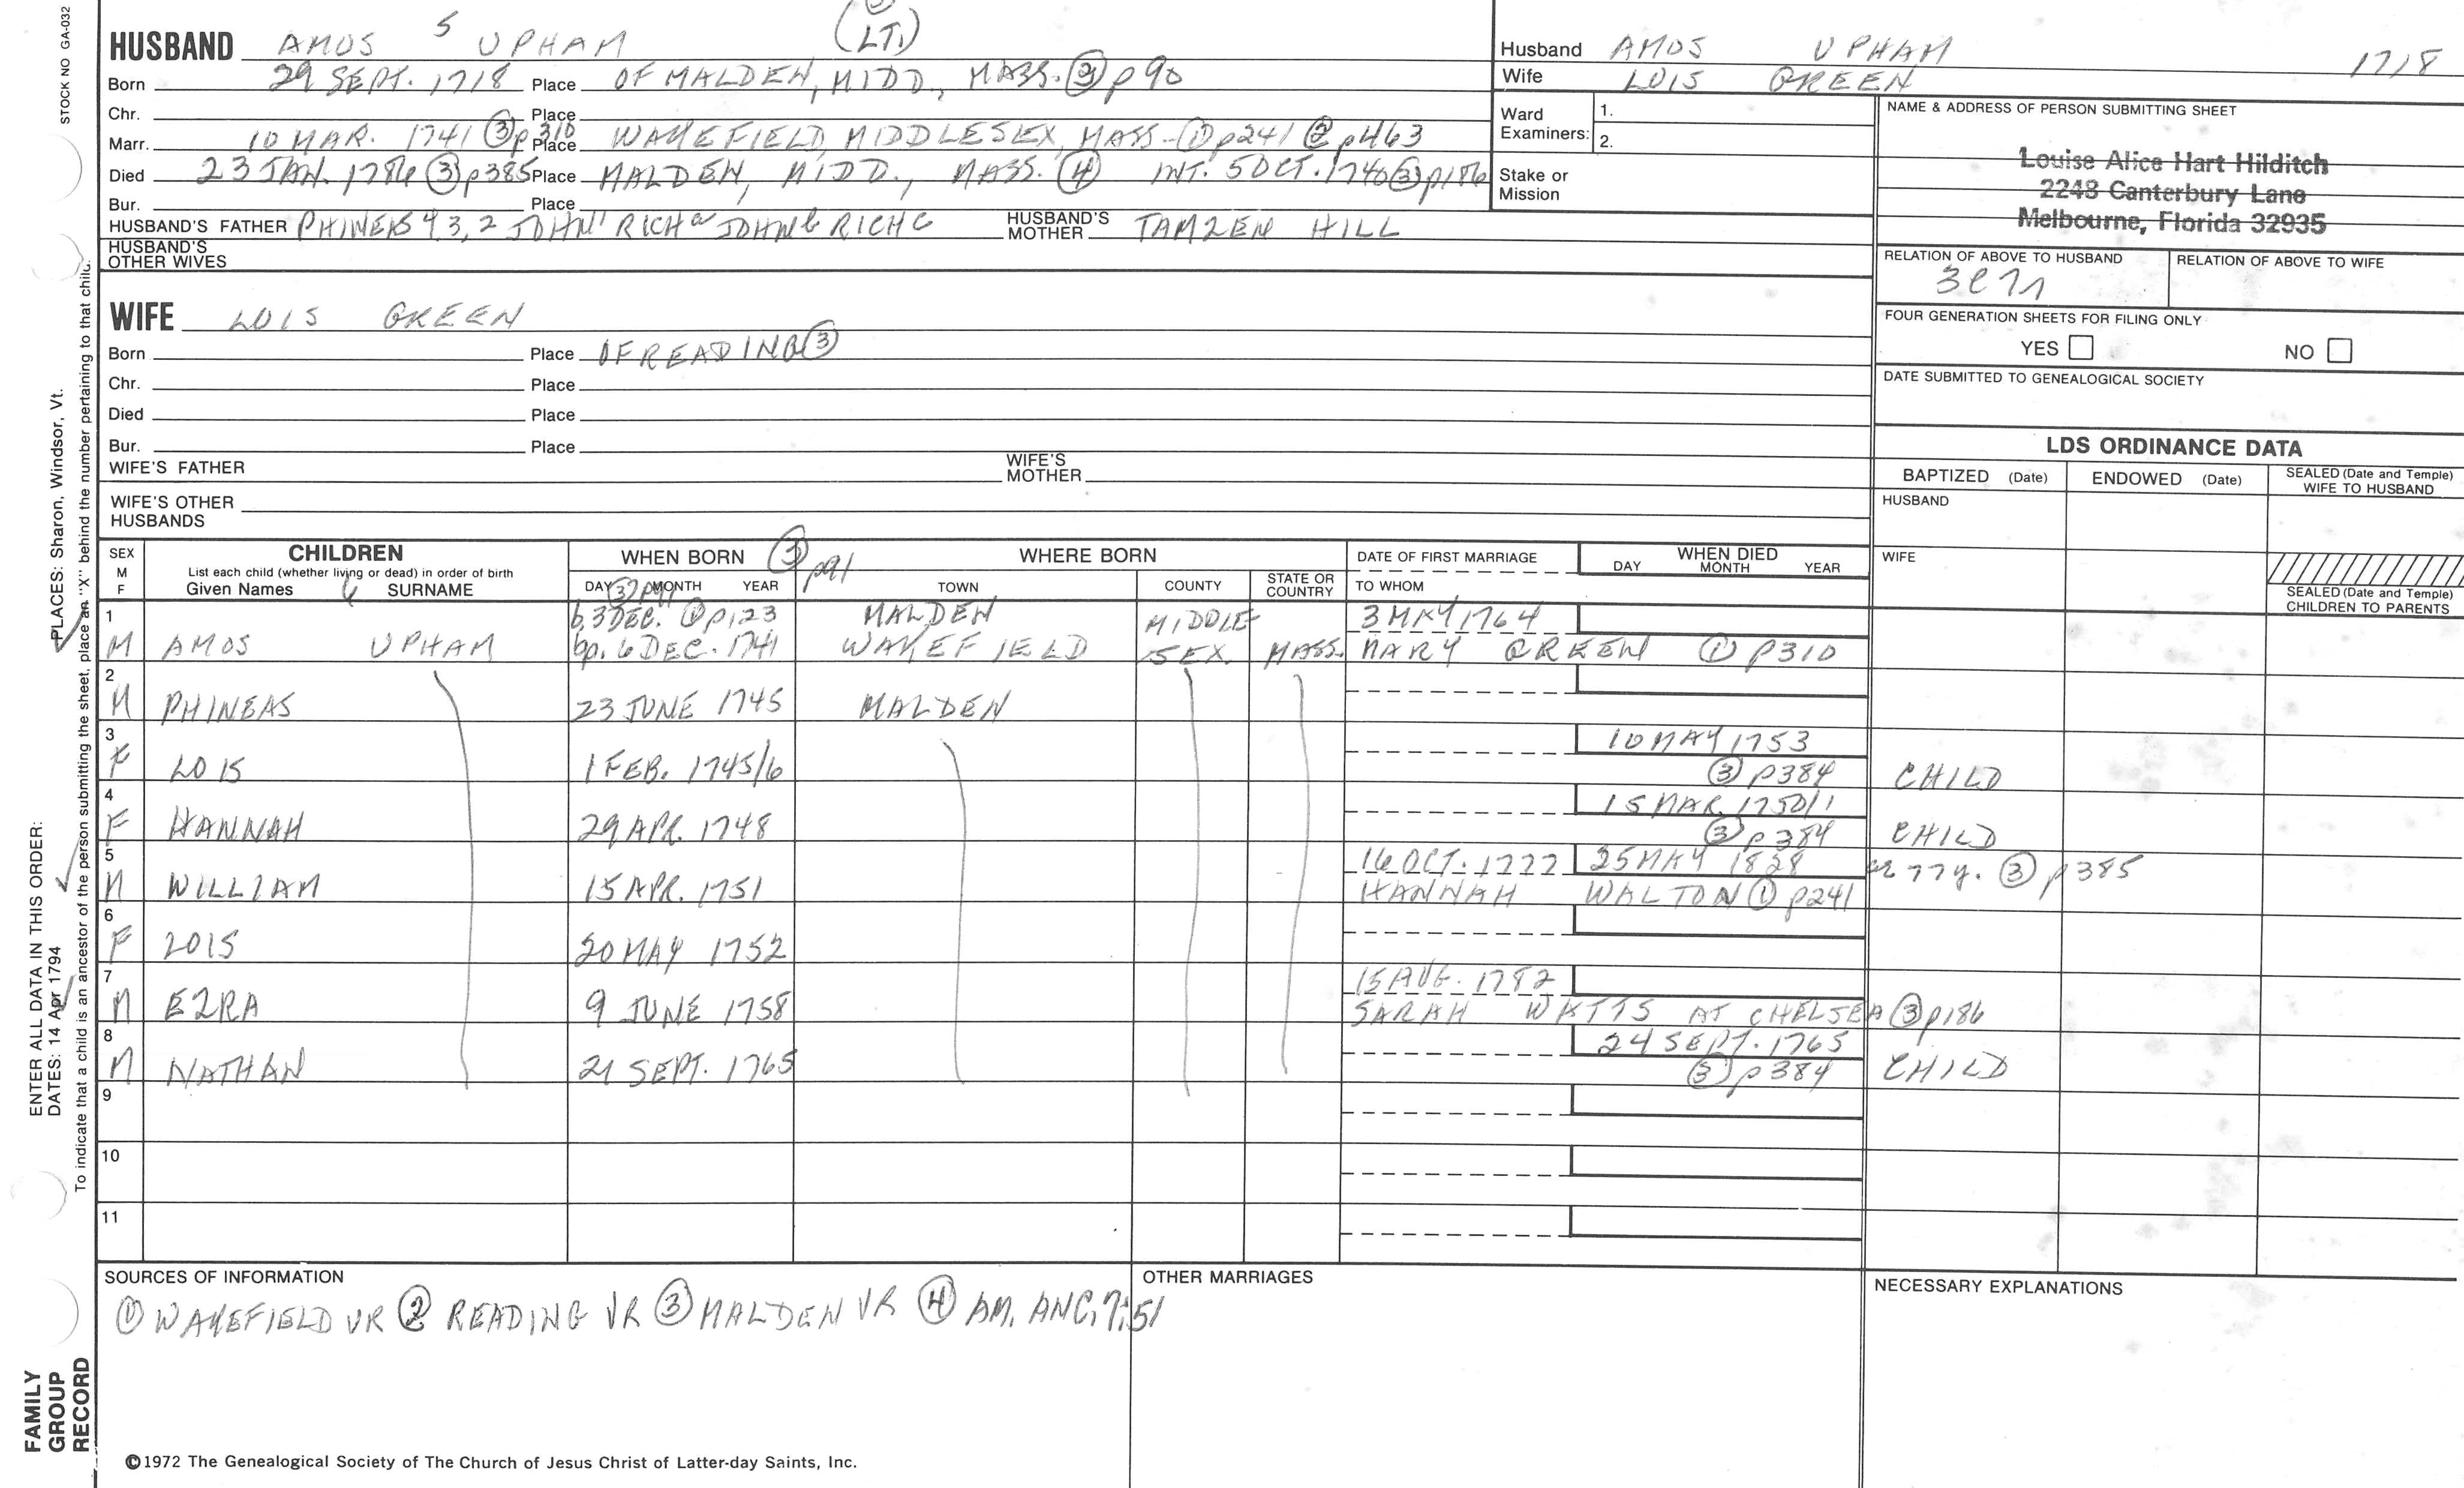 STOCK NO GA-032
HUSBAND AMOS 5 UPHAM (LT.)
Born 29 SEPT. 1718 Place OF MALDEN, MIDD., MASS. ③ p90
Chr. Place
Marr. 10 MAR. 1741 ③ p310 Place WAKEFIELD, MIDDLESEX, MASS. ① p241 ② p463
Died 23 JAN. 1786 ③ p385 Place MALDEN, MIDD., MASS. ④ INT. 5 OCT. 1740 ③ p186
Bur. Place
HUSBAND'S FATHER PHINEAS 4,3,2 JOHN1 RICHa JOHNb RICHc HUSBAND'S MOTHER TAMZEN HILL
HUSBAND'S OTHER WIVES
WIFE LOIS GREEN
Born Place OF READING ③
Chr. Place
Died Place
Bur. Place
WIFE'S FATHER WIFE'S MOTHER
WIFE'S OTHER HUSBANDS
Husband AMOS UPHAM 1718
Wife LOIS GREEN
Ward Examiners: 1.
2.
Stake or Mission
NAME & ADDRESS OF PERSON SUBMITTING SHEET
Louise Alice Hart Hilditch
2248 Canterbury Lane
Melbourne, Florida 32935
RELATION OF ABOVE TO HUSBAND RELATION OF ABOVE TO WIFE
FOUR GENERATION SHEETS FOR FILING ONLY
YES NO
DATE SUBMITTED TO GENEALOGICAL SOCIETY
LDS ORDINANCE DATA
BAPTIZED (Date) ENDOWED (Date) SEALED (Date and Temple) WIFE TO HUSBAND
HUSBAND
WIFE
SEALED (Date and Temple) CHILDREN TO PARENTS
SEX M F CHILDREN WHEN BORN ③ p91 WHERE BORN DATE OF FIRST MARRIAGE WHEN DIED
List each child (whether living or dead) in order of birth
Given Names 6 SURNAME DAY ③ p91 MONTH YEAR TOWN COUNTY STATE OR COUNTRY TO WHOM DAY MONTH YEAR
1 b. 3 DEC. ① p123 MALDEN MIDDLE 3 MAY 1764
M AMOS UPHAM bp. 6 DEC. 1741 WAKEFIELD SEX MASS. MARY GREEN ① p310
2
M PHINEAS 23 JUNE 1745 MALDEN
3 10 MAY 1753
F LOIS 1 FEB. 1745/6 ③ p384 CHILD
4 15 MAR. 1750/1
F HANNAH 29 APR. 1748 ③ p384 CHILD
5 16 OCT. 1777 25 MAY 1828 77y. ③ p385
M WILLIAM 15 APR. 1751 HANNAH WALTON ① p241
6
F LOIS 20 MAY 1752
7 15 AUG. 1782
M EZRA 9 JUNE 1758 SARAH WATTS AT CHELSEA ③ p186
8 24 SEPT. 1765
M NATHAN 21 SEPT. 1765 ③ p384 CHILD
9
10
11
SOURCES OF INFORMATION
① WAKEFIELD VR ② READING VR ③ MALDEN VR ④ AM. ANC. 7:51
OTHER MARRIAGES
NECESSARY EXPLANATIONS
©1972 The Genealogical Society of The Church of Jesus Christ of Latter-day Saints, Inc.
FAMILY GROUP RECORD
ENTER ALL DATA IN THIS ORDER:
DATES: 14 Apr 1794
PLACES: Sharon, Windsor, Vt.
To indicate that a child is an ancestor of the person submitting the sheet, place an "X" behind the number pertaining to that child.